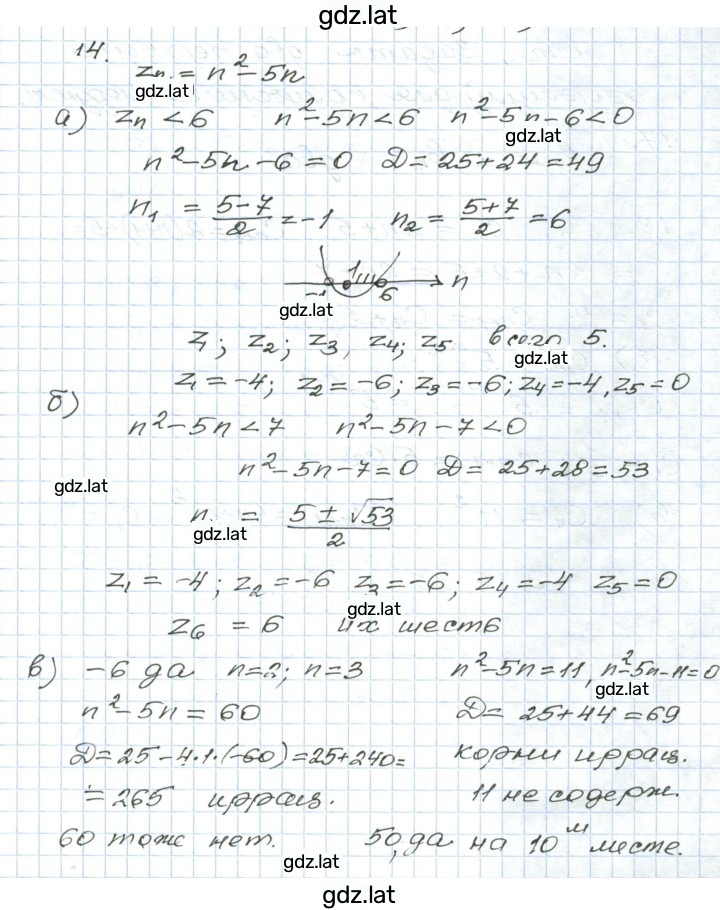 gdz.lat
14.
zₙ = n² – 5n
gdz.lat
а) zₙ < 6   n² – 5n < 6   n² – 5n – 6 < 0
gdz.lat
n² – 5n – 6 = 0   D = 25 + 24 = 49
n₁ = (5 – 7)/2 = –1   n₂ = (5 + 7)/2 = 6
–1   1   6   n
gdz.lat
z₁; z₂; z₃, z₄; z₅   всего 5.
gdz.lat
z₁ = –4; z₂ = –6; z₃ = –6; z₄ = –4, z₅ = 0
б)
n² – 5n < 7   n² – 5n – 7 < 0
n² – 5n – 7 = 0   D = 25 + 28 = 53
gdz.lat
n = (5 ± √53)/2
gdz.lat
z₁ = –4; z₂ = –6   z₃ = –6; z₄ = –4   z₅ = 0
gdz.lat
z₆ = 6   их шесть
в) –6 да   n = 2; n = 3   n² – 5n = 11, n² – 5n – 11 = 0
gdz.lat
n² – 5n = 60   D = 25 + 44 = 69
D = 25 – 4·1·(–60) = 25 + 240 =   корни иррац.
= 265   иррац.   11 не содерж.
60 тож нет.   50, да на 10м месте.
gdz.lat
gdz.lat